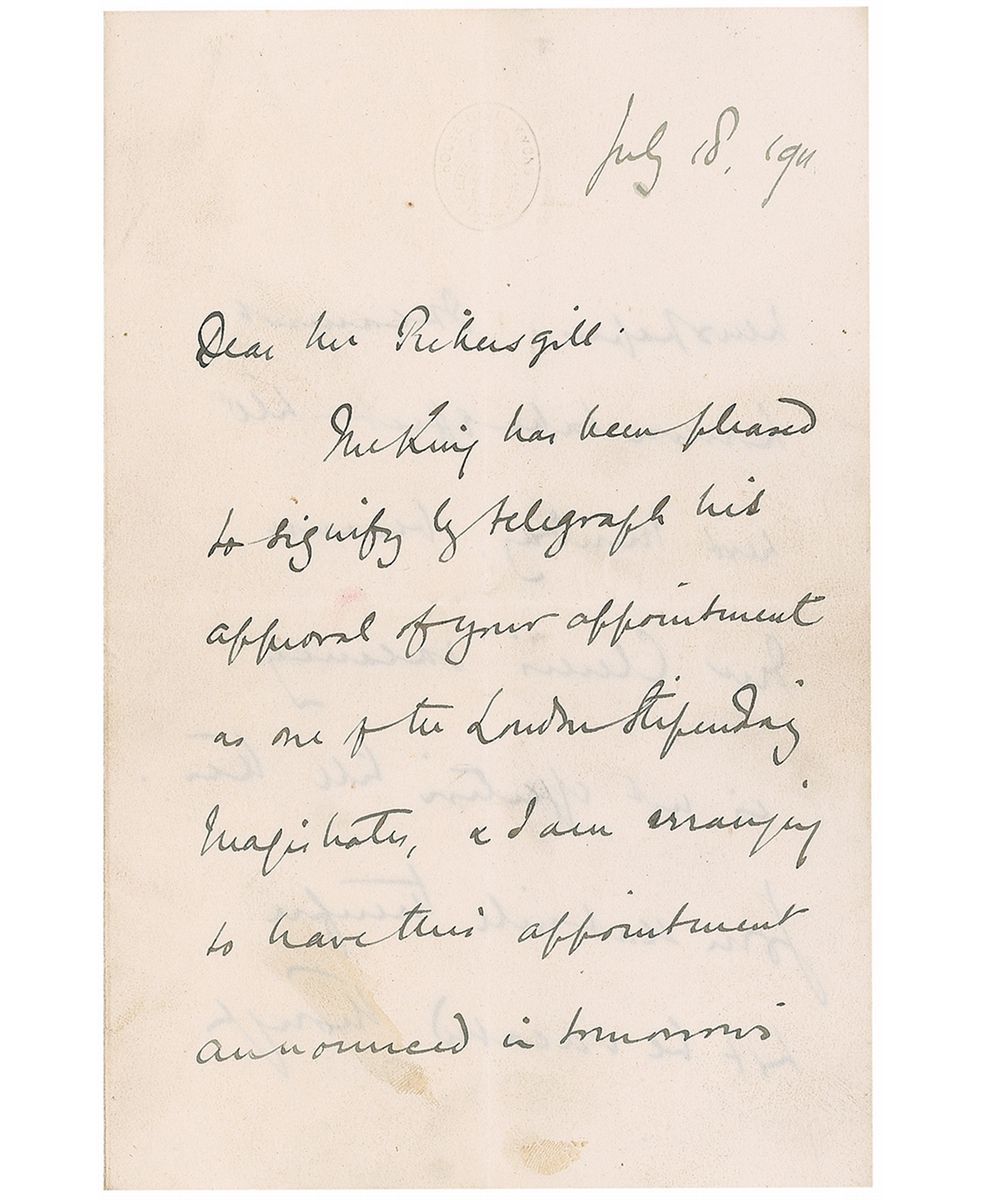 July 18. 1911
Dear Mr Pickersgill
The King has been pleased
to signify by telegraph his
approval of your appointment
as one of the London Stipendiary
Magistrates, & I am arranging
to have this appointment
announced in tomorrow's